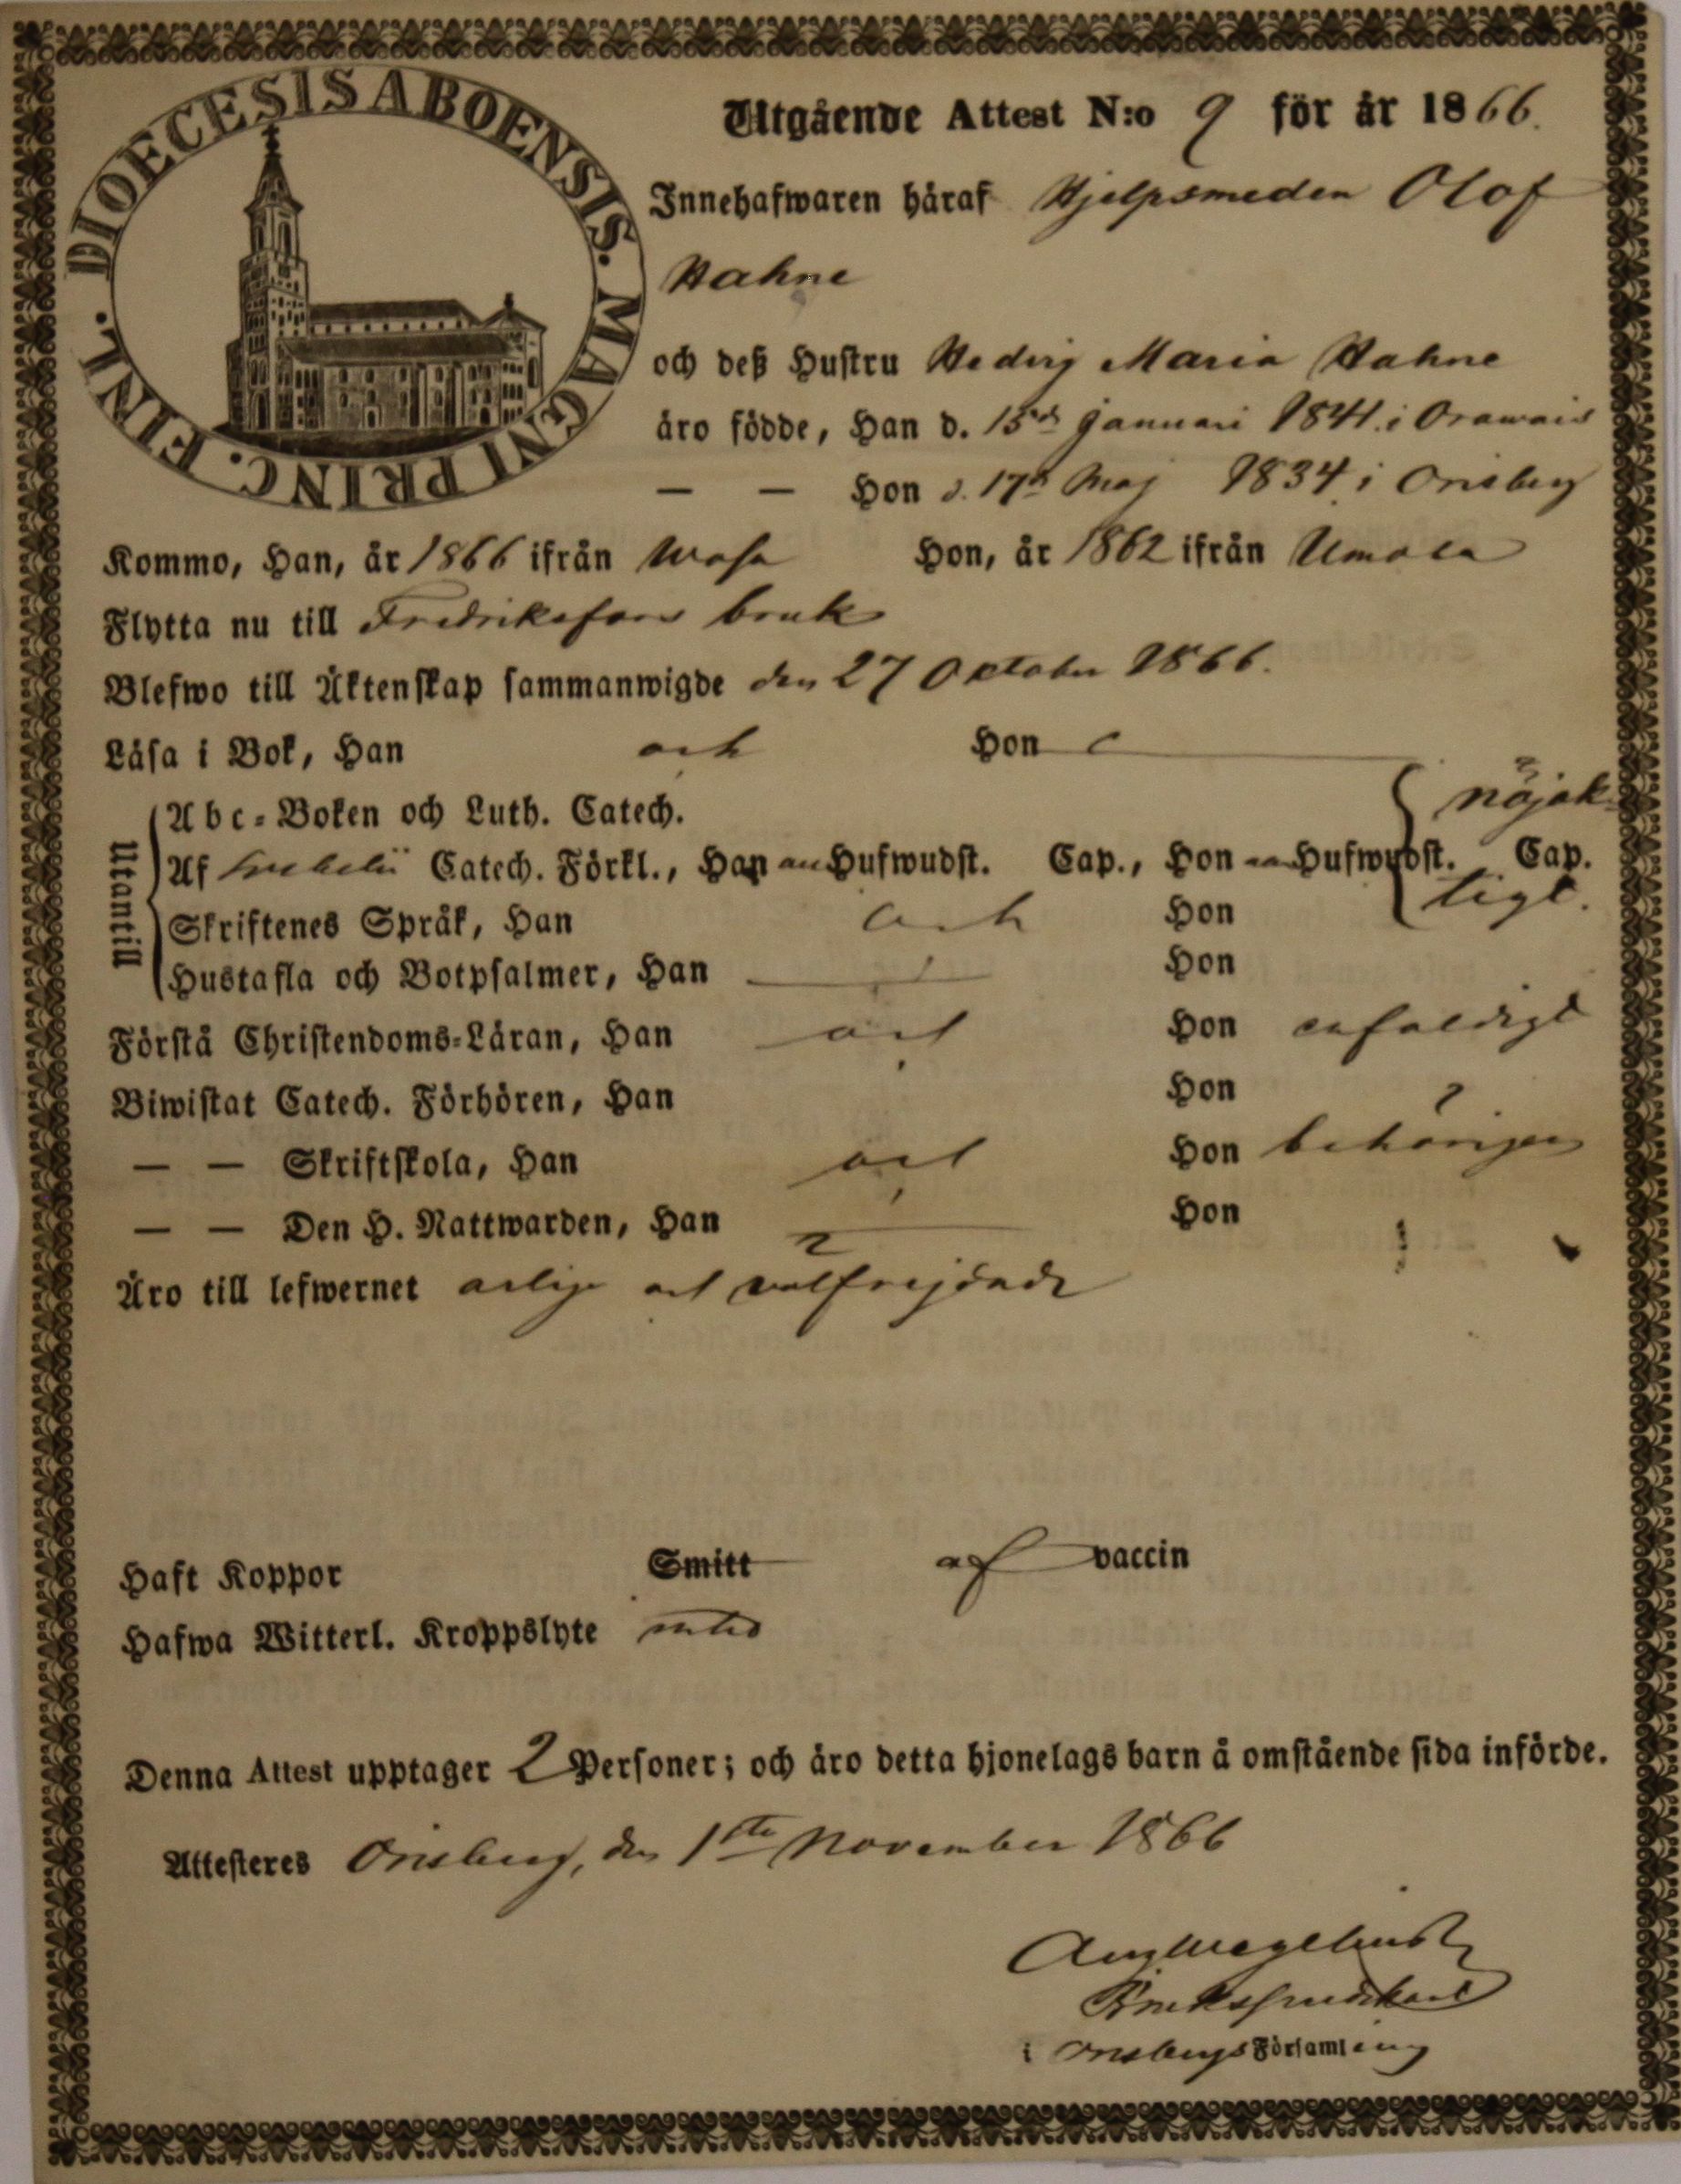 DIOECESIS ABOENSIS. MAGNI PRINC. FINL.
Utgående Attest N:o 9 för år 1866.
Innehafwaren häraf Hjelpsmeden Olof
Hahne
och deß Hustru Hedvig Maria Hahne
äro födde, Han d. 15de Januari 1841 i Orawais
— — Hon d. 17de Maj 1834 i Orisberg
Kommo, Han, år 1866 ifrån Wasa Hon, år 1862 ifrån Umola
Flytta nu till Fredriksfors bruk
Blefwo till Äktenskap sammanwigde den 27 Oktober 1866.
Läsa i Bok, Han och Hon
Abc-Boken och Luth. Catech. nöjak-
Utantill
Af Catech. Förkl., Han Hufwudst. Cap., Hon Hufwudst. Cap.
Skriftenes Språk, Han och Hon tigt.
Hustafla och Botpsalmer, Han Hon
Förstå Christendoms-Läran, Han och Hon enfaldigt
Biwistat Catech. Förhören, Han Hon
— — Skriftskola, Han och Hon behörigen
— — Den H. Nattwarden, Han Hon
Äro till lefwernet ärlige och välfrejdade
Haft Koppor Smitt af vaccin
Hafwa Witterl. Kroppslyte intet
Denna Attest upptager 2 Personer; och äro detta hjonelags barn å omstående sida införde.
Attesteres Orisberg, den 1ste November 1866
Brukspredikant
i Orisbergs Församling